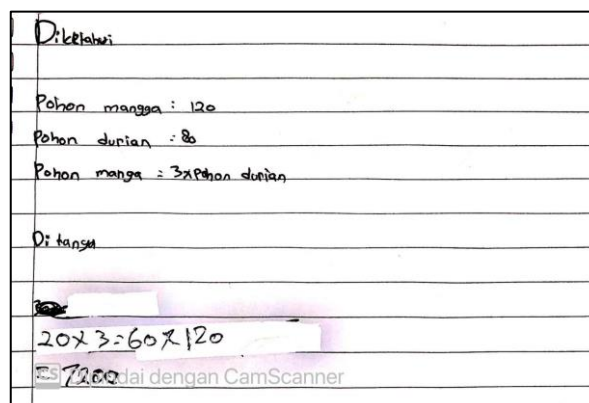 Diketahui
Pohon mangga : 120
Pohon durian : 80
Pohon manga = 3xpohon durian
Di tanya
20 x 3 = 60 x 120
= 7200
dai dengan CamScanner